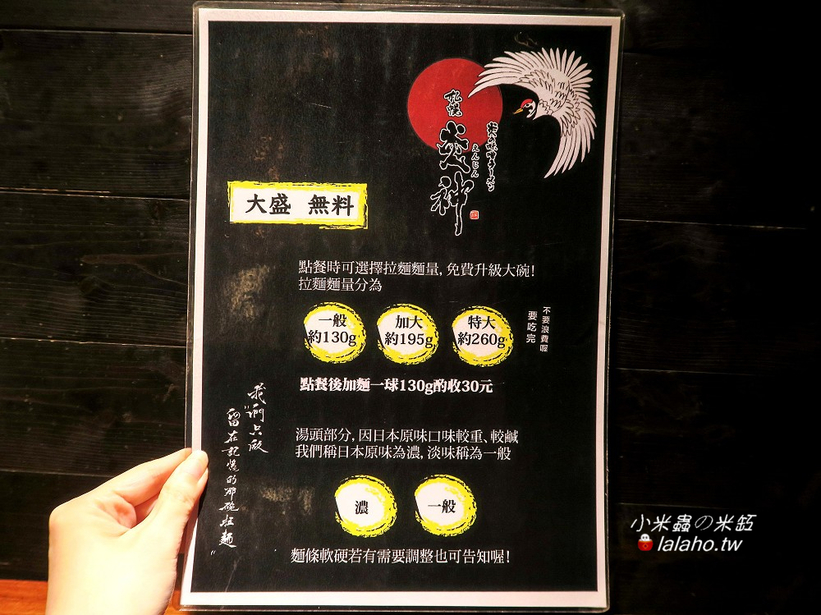 札幌
炎神
えんじん
大盛 無料
點餐時可選擇拉麵麵量, 免費升級大碗!
拉麵麵量分為
一般
約130g
加大
約195g
特大
約260g
不要浪費喔
要吃完
點餐後加麵一球130g酌收30元
湯頭部分, 因日本原味口味較重、較鹹
我們稱日本原味為濃, 淡味稱為一般
濃
一般
麵條軟硬若有需要調整也可告知喔!
我們只做
留在記憶的那碗拉麵
小米蟲の米缸
lalaho.tw